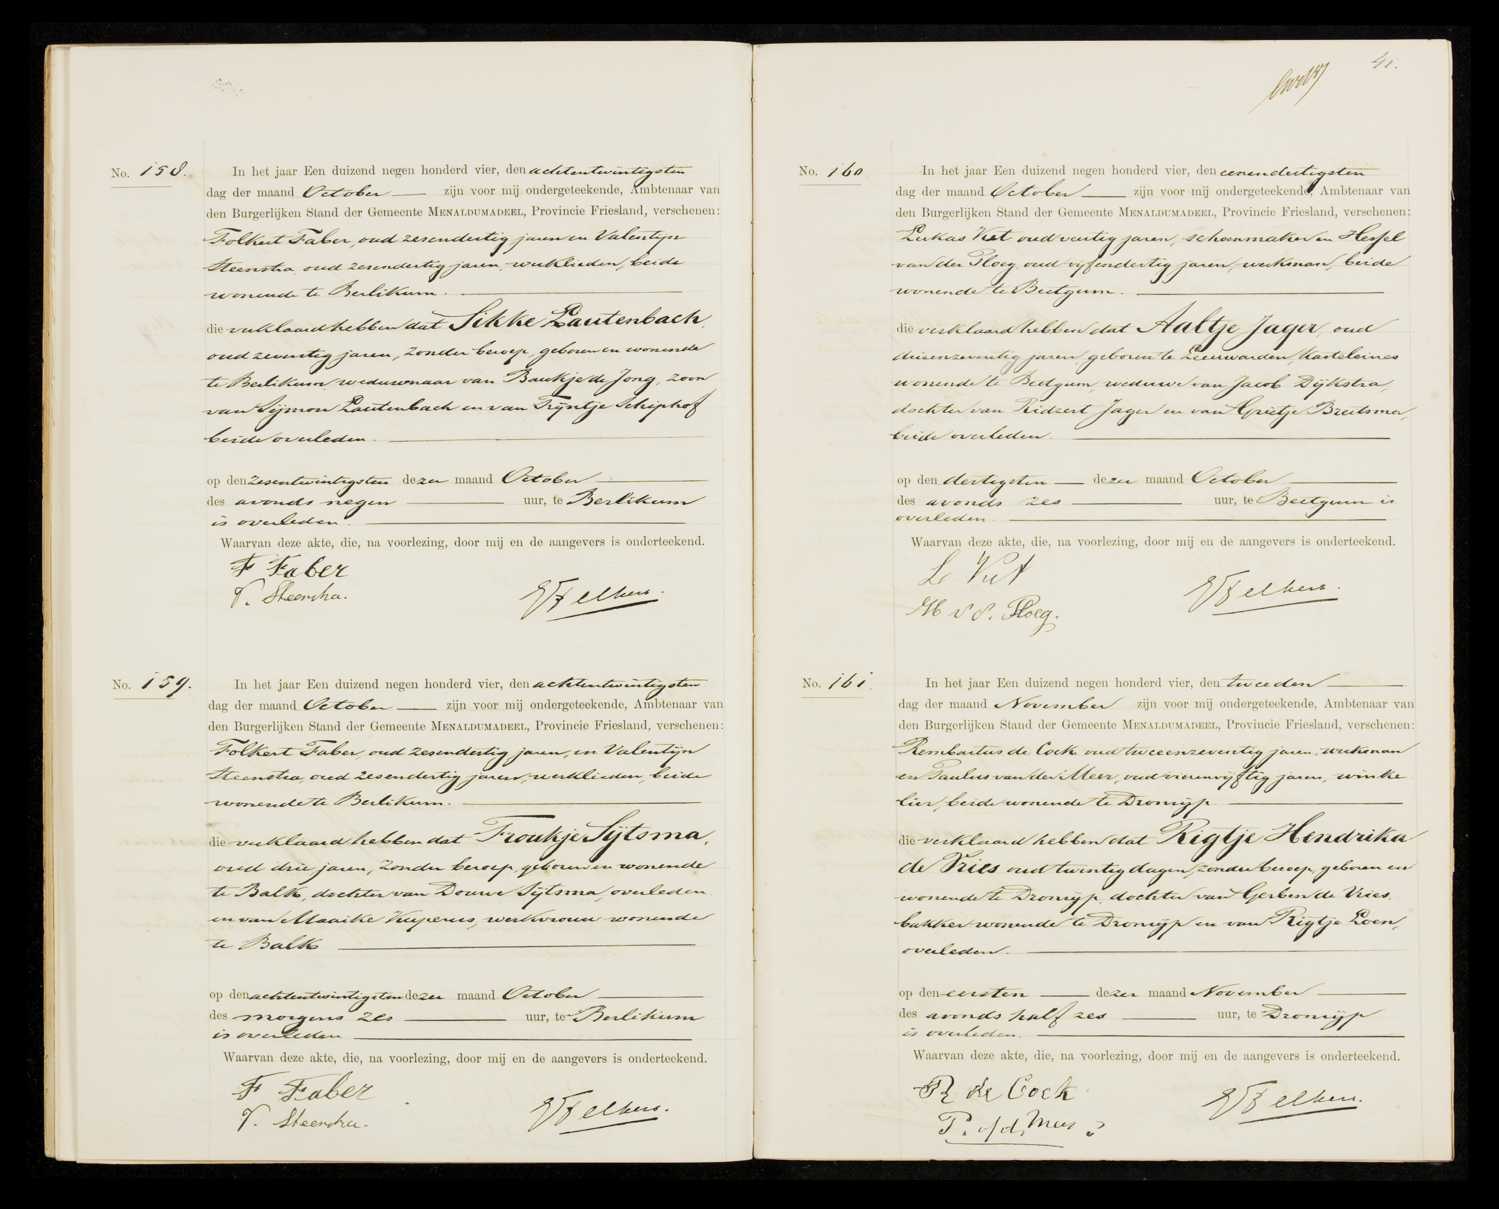 No. 158.
In het jaar Een duizend negen honderd vier, den achtentwintigsten
dag der maand October zijn voor mij ondergeteekende, Ambtenaar van
den Burgerlijken Stand der Gemeente MENALDUMADEEL, Provincie Friesland, verschenen:
Folkert Faber, oud zesendertig jaren en Valentyn
Steenstra oud zesendertig jaren, werklieden, beide
wonende te Berlikum.
die verklaard hebben dat Sikke Lautenbach,
oud zeventig jaren, zonder beroep, geboren en wonende
te Berlikum weduwnaar van Baukje de Jong, zoon
van Sijmon Lautenbach en van Trijntje Schiphof
beide overleden.
op den zesentwintigsten dezer maand October
des avonds negen uur, te Berlikum
is overleden.
Waarvan deze akte, die, na voorlezing, door mij en de aangevers is onderteekend.
F Faber
V. Steenstra.
No. 159.
In het jaar Een duizend negen honderd vier, den achtentwintigsten
dag der maand October zijn voor mij ondergeteekende, Ambtenaar van
den Burgerlijken Stand der Gemeente MENALDUMADEEL, Provincie Friesland, verschenen:
Folkert Faber, oud zesendertig jaren, en Valentijn
Steenstra, oud zesendertig jaren, werklieden, beide
wonende te Berlikum.
die verklaard hebben dat Froukje Sijtsma,
oud drie jaren, zonder beroep, geboren en wonende
te Balk, dochter van Douwe Sijtsma, overleden
en van Maaike Kuperus, werkvrouw wonende
te Balk
op den achtentwintigsten dezer maand October
des morgens zes uur, te Berlikum
is overleden
Waarvan deze akte, die, na voorlezing, door mij en de aangevers is onderteekend.
F Faber
V. Steenstra.
41.
No. 160
In het jaar Een duizend negen honderd vier, den eenendertigsten
dag der maand October zijn voor mij ondergeteekende, Ambtenaar van
den Burgerlijken Stand der Gemeente MENALDUMADEEL, Provincie Friesland, verschenen:
Lukas Vint oud veertig jaren, schoenmaker en Hessel
van der Ploeg, oud vijfendertig jaren, werkman, beide
wonende te Beetgum.
die verklaard hebben dat Aaltje Jager, oud
drieenzeventig jaren, geboren te Leeuwarden, kasteleines
wonende te Beetgum weduwe van Jacob Dijkstra,
dochter van Ridzert Jager en van Grietje Breitsma,
beide overleden.
op den dertigsten dezer maand October
des avonds zes uur, te Beetgum is
overleden.
Waarvan deze akte, die, na voorlezing, door mij en de aangevers is onderteekend.
H v d. Ploeg.
No. 161.
In het jaar Een duizend negen honderd vier, den tweeden
dag der maand November zijn voor mij ondergeteekende, Ambtenaar van
den Burgerlijken Stand der Gemeente MENALDUMADEEL, Provincie Friesland, verschenen:
Rembartus de Cock oud tweeenzeventig jaren, werkman
en Paulus van der Meer, oud vierenvijftig jaren, winke
lier, beide wonende te Dronrijp.
die verklaard hebben dat Rigtje Hendrika
de Vries oud twintig dagen, zonder beroep, geboren en
wonende te Dronrijp, dochter van Gerben de Vries,
bakker wonende te Dronrijp en van Rigtje Loen,
overleden.
op den eersten dezer maand November
des avonds half zes uur, te Dronrijp
is overleden.
Waarvan deze akte, die, na voorlezing, door mij en de aangevers is onderteekend.
R de Cock
P. v/d. Meer